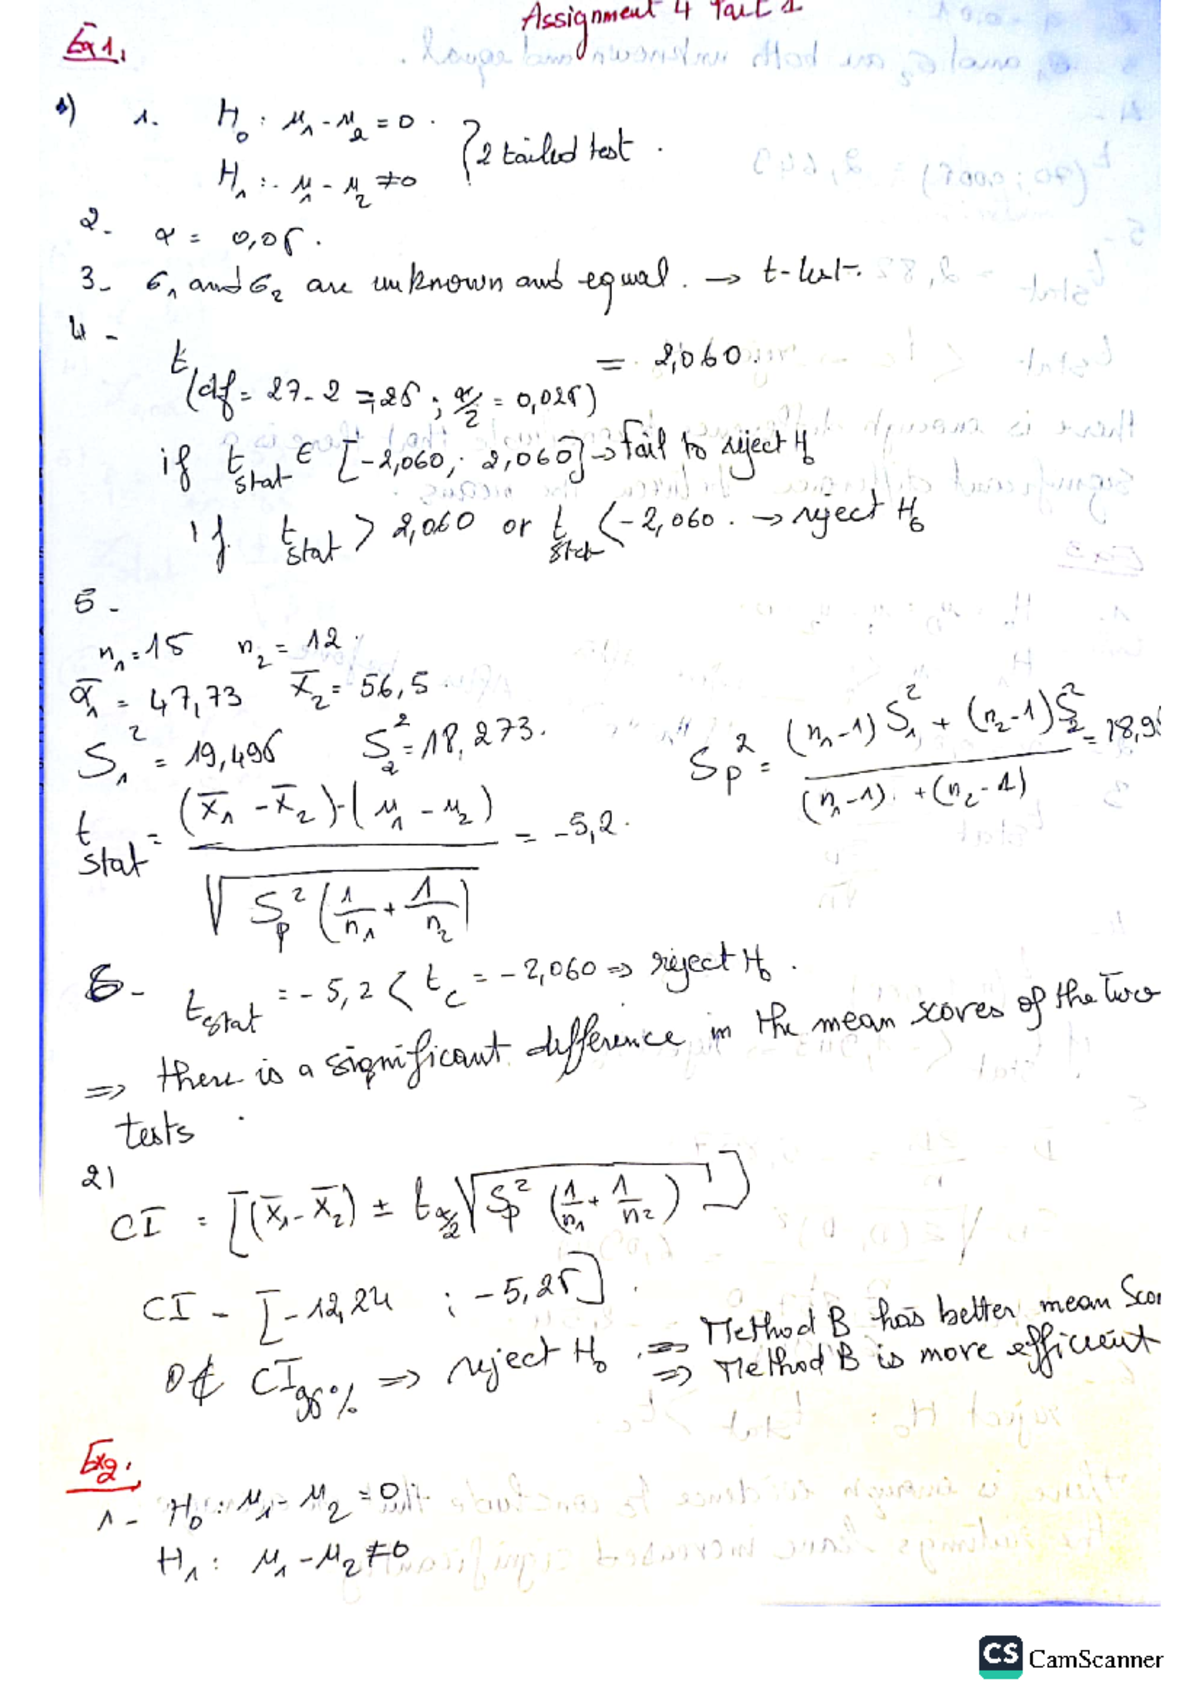 Assignment 4 Part 1
Ex1.
1) 1. H₀ : μ₁ - μ₂ = 0 .
H₁ : μ₁ - μ₂ ≠ 0
2 tailed test .
2. α = 0,05 .
3- σ₁ and σ₂ are unknown and equal. → t-test.
4-
t (df = 27-2 = 25 ; α/2 = 0,025) = 2,060.
if t stat ∈ [-2,060 ; 2,060] → fail to reject H₀
if t stat > 2,060 or t stat < -2,060 . → reject H₀
5-
n₁ = 15 n₂ = 12 .
x̄₁ = 47,73 x̄₂ = 56,5
S₁² = 19,495 S₂² = 18,273.
Sp² = ((n₁-1) S₁² + (n₂-1) S₂²) / ((n₁-1) + (n₂-1)) = 18,9
t stat = ((x̄₁ - x̄₂) - (μ₁ - μ₂)) / √(Sp² (1/n₁ + 1/n₂)) = -5,2 .
6- t stat = -5,2 < t c = -2,060 ⇒ reject H₀ .
⇒ there is a significant difference in the mean scores of the two
tests .
2)
CI = [(x̄₁ - x̄₂) ± t α/2 √(Sp² (1/n₁ + 1/n₂))]
CI = [-12,24 ; -5,25] .
0 ∉ CI 95% ⇒ reject H₀ . ⇒ Method B has better mean Scor
⇒ Method B is more efficient
Ex2.
1- H₀ : μ₁ - μ₂ = 0
H₁ : μ₁ - μ₂ ≠ 0
CS CamScanner